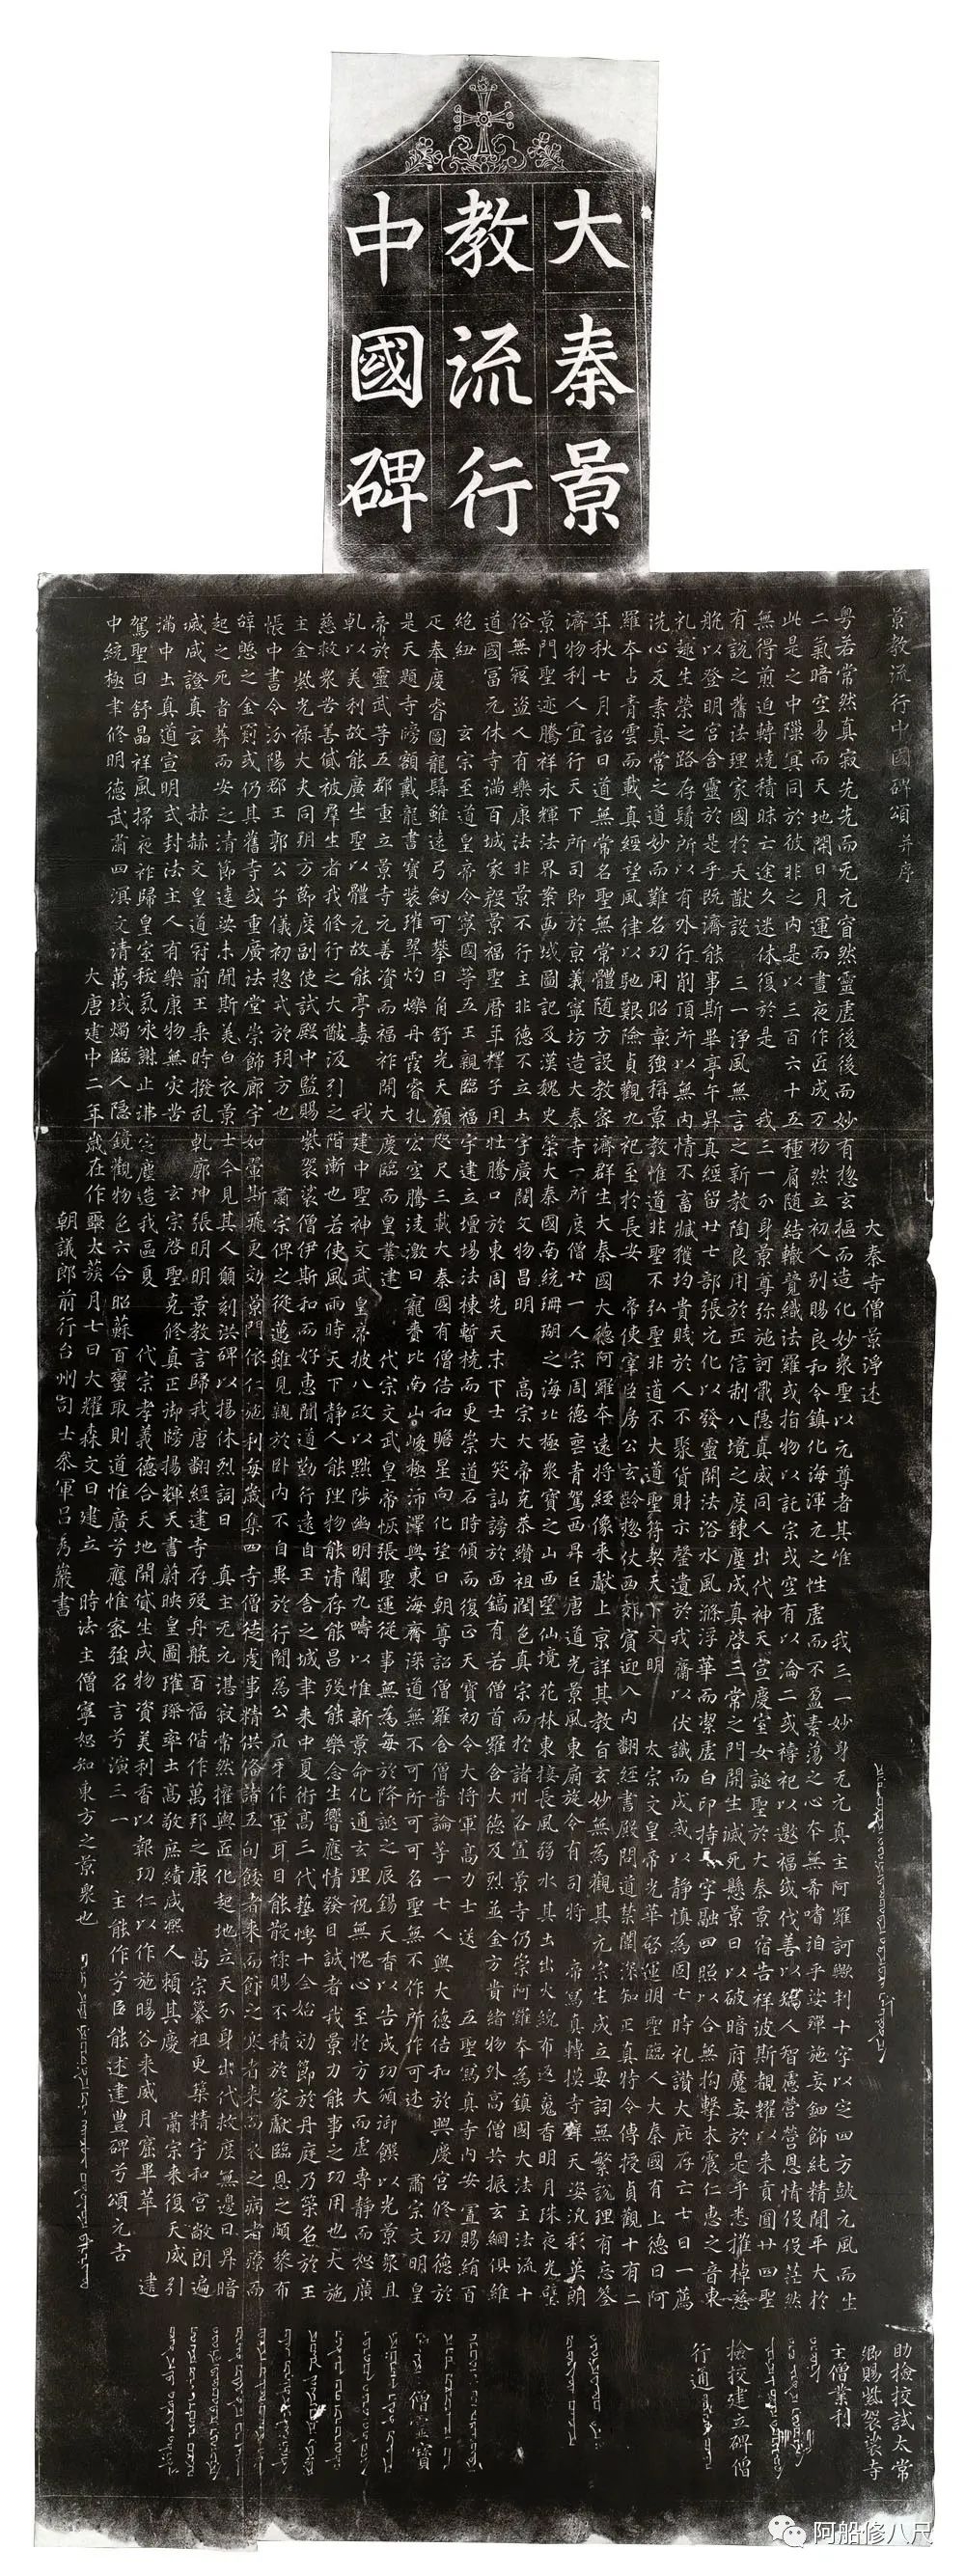 大秦景
教流行
中國碑
景教流行中國碑頌 并序
大秦寺僧景淨述
粵若常然真寂先先而无元窅然靈虛後後而妙有惣玄摳而造化妙衆聖以元尊者其唯 我三一妙身无元真主阿羅訶歟判十字以定四方鼓元風而生
二氣暗空易而天地開日月運而晝夜作匠成万物然立初人別賜良和令鎮化海渾元之性虛而不盈素蕩之心本無希嗜洎乎娑殫施妄鈿飾純精閒平大於
此是之中隟冥同於彼非之內是以三百六十五種肩隨結轍競織法羅或指物以託宗或空有以淪二或禱祀以邀福或伐善以矯人智慮營營恩情役役茫然
無得煎迫轉燒積昧亡途久迷休復於是 我三一分身景尊弥施訶戢隱真威同人出代神天宣慶室女誕聖於大秦景宿告祥波斯覩耀以来貢圓廿四聖
有說之舊法理家國於大猷設 三一淨風無言之新教陶良用於正信制八境之度鍊塵成真啓三常之門開生滅死懸景日以破暗府魔妄於是乎悉摧棹慈
航以登明宮含靈於是乎既濟能事斯畢亭午昇真經留廿七部張元化以發靈關法浴水風滌浮華而潔虛白印持十字融四照以合無拘擊木震仁惠之音東
礼趣生榮之路存鬚所以有外行削頂所以無內情不畜臧獲均貴賤於人不聚貨財示罄遺於我齋以伏識而成戒以靜慎為固七時礼讚大庇存亡七日一薦
洗心反素真常之道妙而難名功用昭彰強稱景教惟道非聖不弘聖非道不大道聖符契天下文明 太宗文皇帝光華啓運明聖臨人大秦國有上德曰阿
羅本占青雲而載真經望風律以馳艱險貞觀九祀至於長安 帝使宰臣房公玄齡惣仗西郊賓迎入內翻經書殿問道禁闈深知正真特令傳授貞觀十有二
年秋七月詔曰道無常名聖無常體隨方設教密濟群生大秦國大德阿羅本遠將經像来獻上京詳其教旨玄妙無為觀其元宗生成立要詞無繁說理有忘筌
濟物利人宜行天下所司即於京義寧坊造大秦寺一所度僧廿一人宗周德喪青駕西昇巨唐道光景風東扇旋令有司將 帝寫真轉摸寺壁天姿汎彩英朗
景門聖迹騰祥永輝法界案西域圖記及漢魏史策大秦國南統珊瑚之海北極衆寶之山西望仙境花林東接長風弱水其土出火綄布返魂香明月珠夜光璧
俗無寇盜人有樂康法非景不行主非德不立土宇廣闊文物昌明 高宗大帝克恭纘祖潤色真宗而於諸州各置景寺仍崇阿羅本為鎮國大法主法流十
道國富元休寺滿百城家殷景福聖曆年釋子用壯騰口於東周先天末下士大笑訕謗於西鎬有若僧首羅含大德及烈並金方貴緒物外高僧共振玄綱俱維
絕紐 玄宗至道皇帝令寧國等五王親臨福宇建立壇場法棟暫橈而更崇道石時傾而復正天寶初令大將軍高力士送 五聖寫真寺內安置賜絹百
疋奉慶睿圖龍髯雖遠弓劒可攀日角舒光天顏咫尺三載大秦國有僧佶和瞻星向化望日朝尊詔僧羅含僧普論等一七人與大德佶和於興慶宮修功德於
是天題寺牓額戴龍書寶裝璀翠灼爍丹霞睿扎宏空騰凌激日寵賚比南山峻極沛澤與東海齊深道無不可所可可名聖無不作所作可述 肅宗文明皇
帝於靈武等五郡重立景寺元善資而福祚開大慶臨而皇業建 代宗文武皇帝恢張聖運從事無為每於降誕之辰錫天香以告成功頒御饌以光景衆且
乹以美利故能廣生聖以體元故能亭毒 我建中聖神文武皇帝披八政以黜陟幽明闡九疇以惟新景命化通玄理祝無愧心至於方大而虛專靜而恕廣
慈救衆苦善貸被羣生者我修行之大猷汲引之階漸也若使風雨時天下靜人能理物能清存能昌歿能樂念生響應情發目誠者我景力能事之功用也大施
主金紫光祿大夫同朔方節度副使試殿中監賜紫袈裟僧伊斯和而好惠聞道勤行遠自王舍之城聿来中夏術高三代藝博十全始効節於丹庭乃策名於王
帳中書令汾陽郡王郭公子儀初惣戎於朔方也 肅宗俾之從邁雖見親於卧內不自異於行閒為公爪牙作軍耳目能散祿賜不積於家獻臨恩之頗黎布
辭憩之金罽或仍其舊寺或重廣法堂崇飾廊宇如翬斯飛更効景門依仁施利每歲集四寺僧徒虔事精供俻諸五旬餧者来而飰之寒者来而衣之病者療而
起之死者葬而安之清節達娑未聞斯美白衣景士今見其人願刻洪碑以揚休烈詞曰 真主无元湛寂常然權輿匠化起地立天分身出代救度無邊日昇暗
滅咸證真玄 赫赫文皇道冠前王乘時撥乱乹廓坤張明明景教言歸我唐翻經建寺存歿舟航百福偕作萬邦之康 高宗纂祖更築精宇和宮敞朗遍
滿中土真道宣明式封法主人有樂康物無灾苦 玄宗啓聖克修真正御牓揚輝天書蔚映皇圖璀璨率土高敬庶績咸熙人賴其慶 肅宗来復天威引
駕聖日舒晶祥風掃夜祚歸皇室祅氛永謝止沸定塵造我區夏 代宗孝義德合天地開貸生成物資美利香以報功仁以作施暘谷来威月窟畢萃 建
中統極聿修明德武肅四溟文清萬域燭臨人隱鏡觀物色六合昭蘇百蠻取則道惟廣兮應惟密強名言兮演三一 主能作兮臣能述建豐碑兮頌元吉
大唐建中二年歲在作噩太蔟月七日大耀森文日建立 時法主僧寧恕知東方之景衆也
朝議郎前行台州司士叅軍呂秀巖書
助檢挍試太常
卿賜紫袈裟寺
主僧業利
檢挍建立碑僧
行通
僧靈寶
阿船修八尺